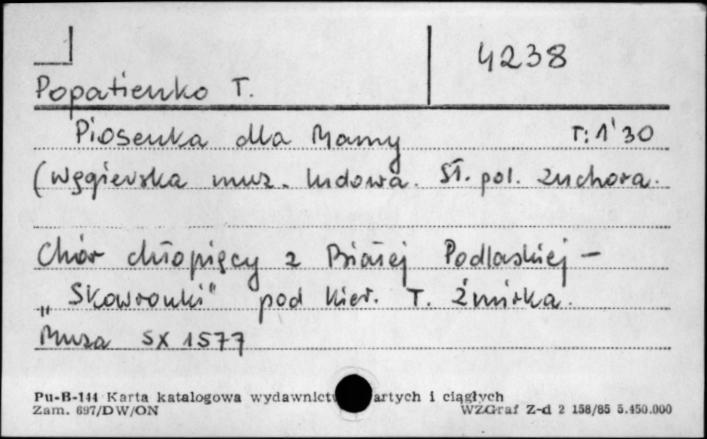 4238
Popatienko T.
Piosenka dla Mamy T: 1'30
(węgierska muz. ludowa. sł. pol. Zuchora.
Chór chłopięcy z Białej Podlaskiej –
„Skowronki" pod kier. T. Żmirka.
Muza SX 1577
Pu-B-144 Karta katalogowa wydawnictw zwartych i ciągłych
Zam. 697/DW/ON WZGraf Z-d 2 158/85 5.450.000